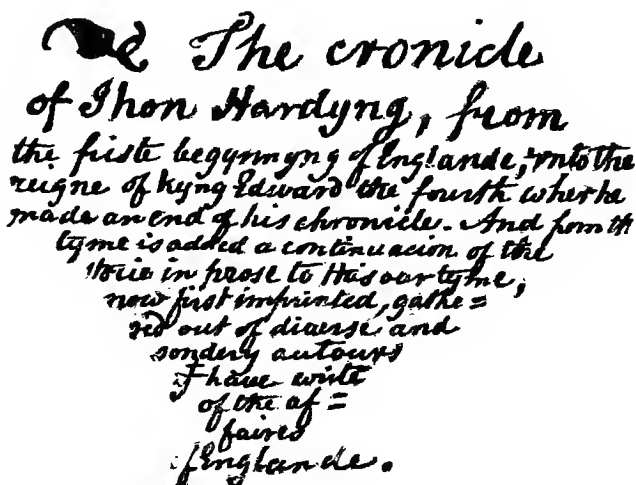 The cronicle
of Jhon Hardyng, from
the firste begynnyng of Englande, vnto the
reigne of kyng Edward the fourth wher he
made an end of his chronicle. And from th
tyme is added a continuacion of the
storie in prose to this our tyme,
now first imprinted, gathe=
red out of diuerse and
sondery autours
haue write
of the af=
faires
of Englande.